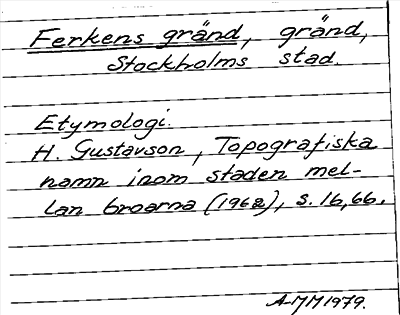 Ferkens gränd, gränd,
Stockholms stad.
Etymologi.
H. Gustavson, Topografiska
namn inom staden mel-
lan broarna (1962), s. 16, 66.
A-MM 1979.